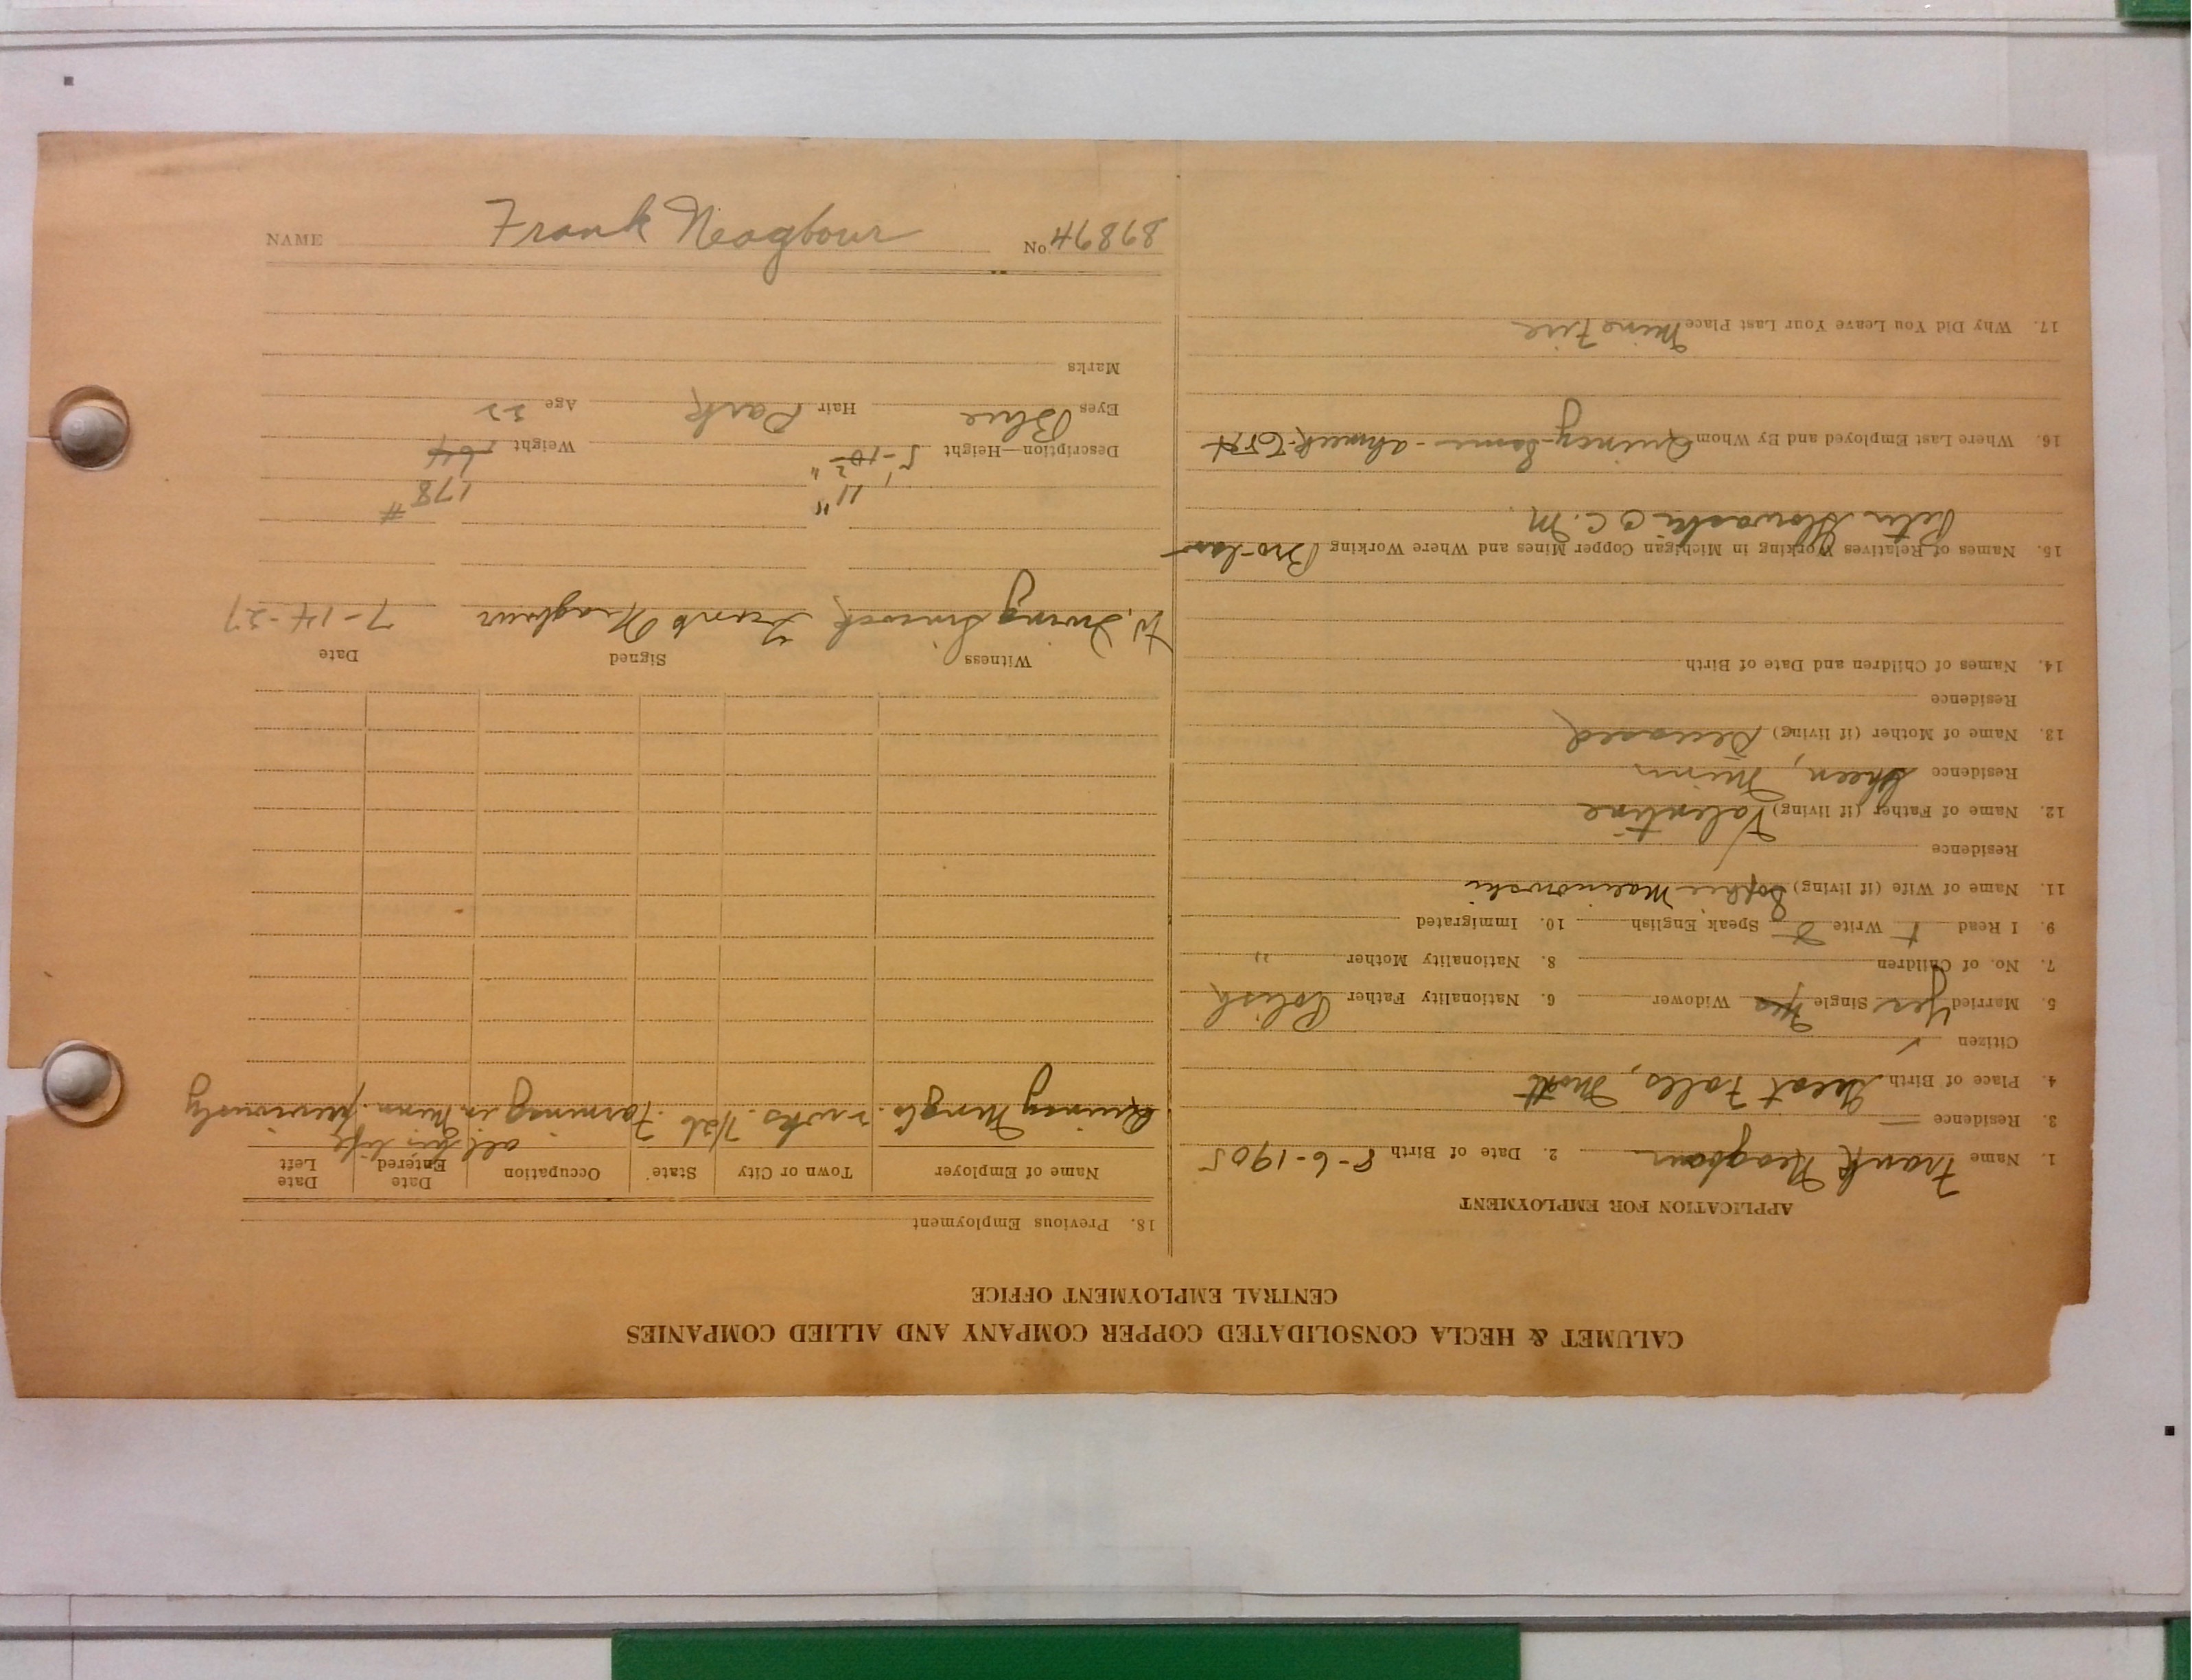 NAME Frank Neogbour No. 89894
CALUMET & HECLA CONSOLIDATED COPPER COMPANY AND ALLIED COMPANIES
CENTRAL EMPLOYMENT OFFICE
APPLICATION FOR EMPLOYMENT
1. Name Frank Neogbour 2. Date of Birth 8-6-1905
3. Residence
4. Place of Birth Great Falls, Mont
Citizen ✓
5. Married Yes Single Yes Widower 6. Nationality Father Polish
7. No. of Children 8. Nationality Mother "
9. I Read Write Speak English 10. Immigrated
11. Name of Wife (if living) Sophie
Residence
12. Name of Father (if living) Valentine
Residence Minn
13. Name of Mother (if living) Deceased
Residence
14. Names of Children and Date of Birth
15. Names of Relatives Working in Michigan Copper Mines and Where Working Bro-law
Peter C.C.M.
16. Where Last Employed and By Whom Quincy- Same - Ahmeek-
17. Why Did You Leave Your Last Place Mine Fire
18. Previous Employment
Name of Employer Town or City State Occupation Date Entered Date Left
all his life
Quincy 2 wks. Farming in Minn. previously
Witness Signed Date
W. Irving Frank Neagbour 7-14-27
11" 178#
Description—Height 5'-10½" Weight 164
Eyes Blue Hair Dark Age 22
Marks